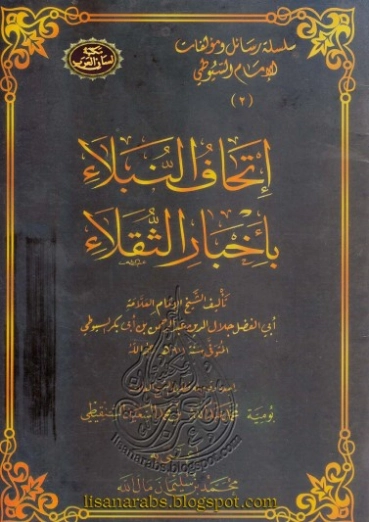 سلسلة رسائل ومؤلفات
الإمام السيوطي
(٢)
مكتبة
لسان العرب
إتحاف النبلاء
بأخبار الثقلاء
تأليف الشيخ الإمام العلامة
أبي الفضل جلال الدين عبد الرحمن بن أبي بكر السيوطي
المتوفى سنة ٩١١هـ رحمه الله
محمد بن سليمان مال الله
lisanarabs.blogspot.com